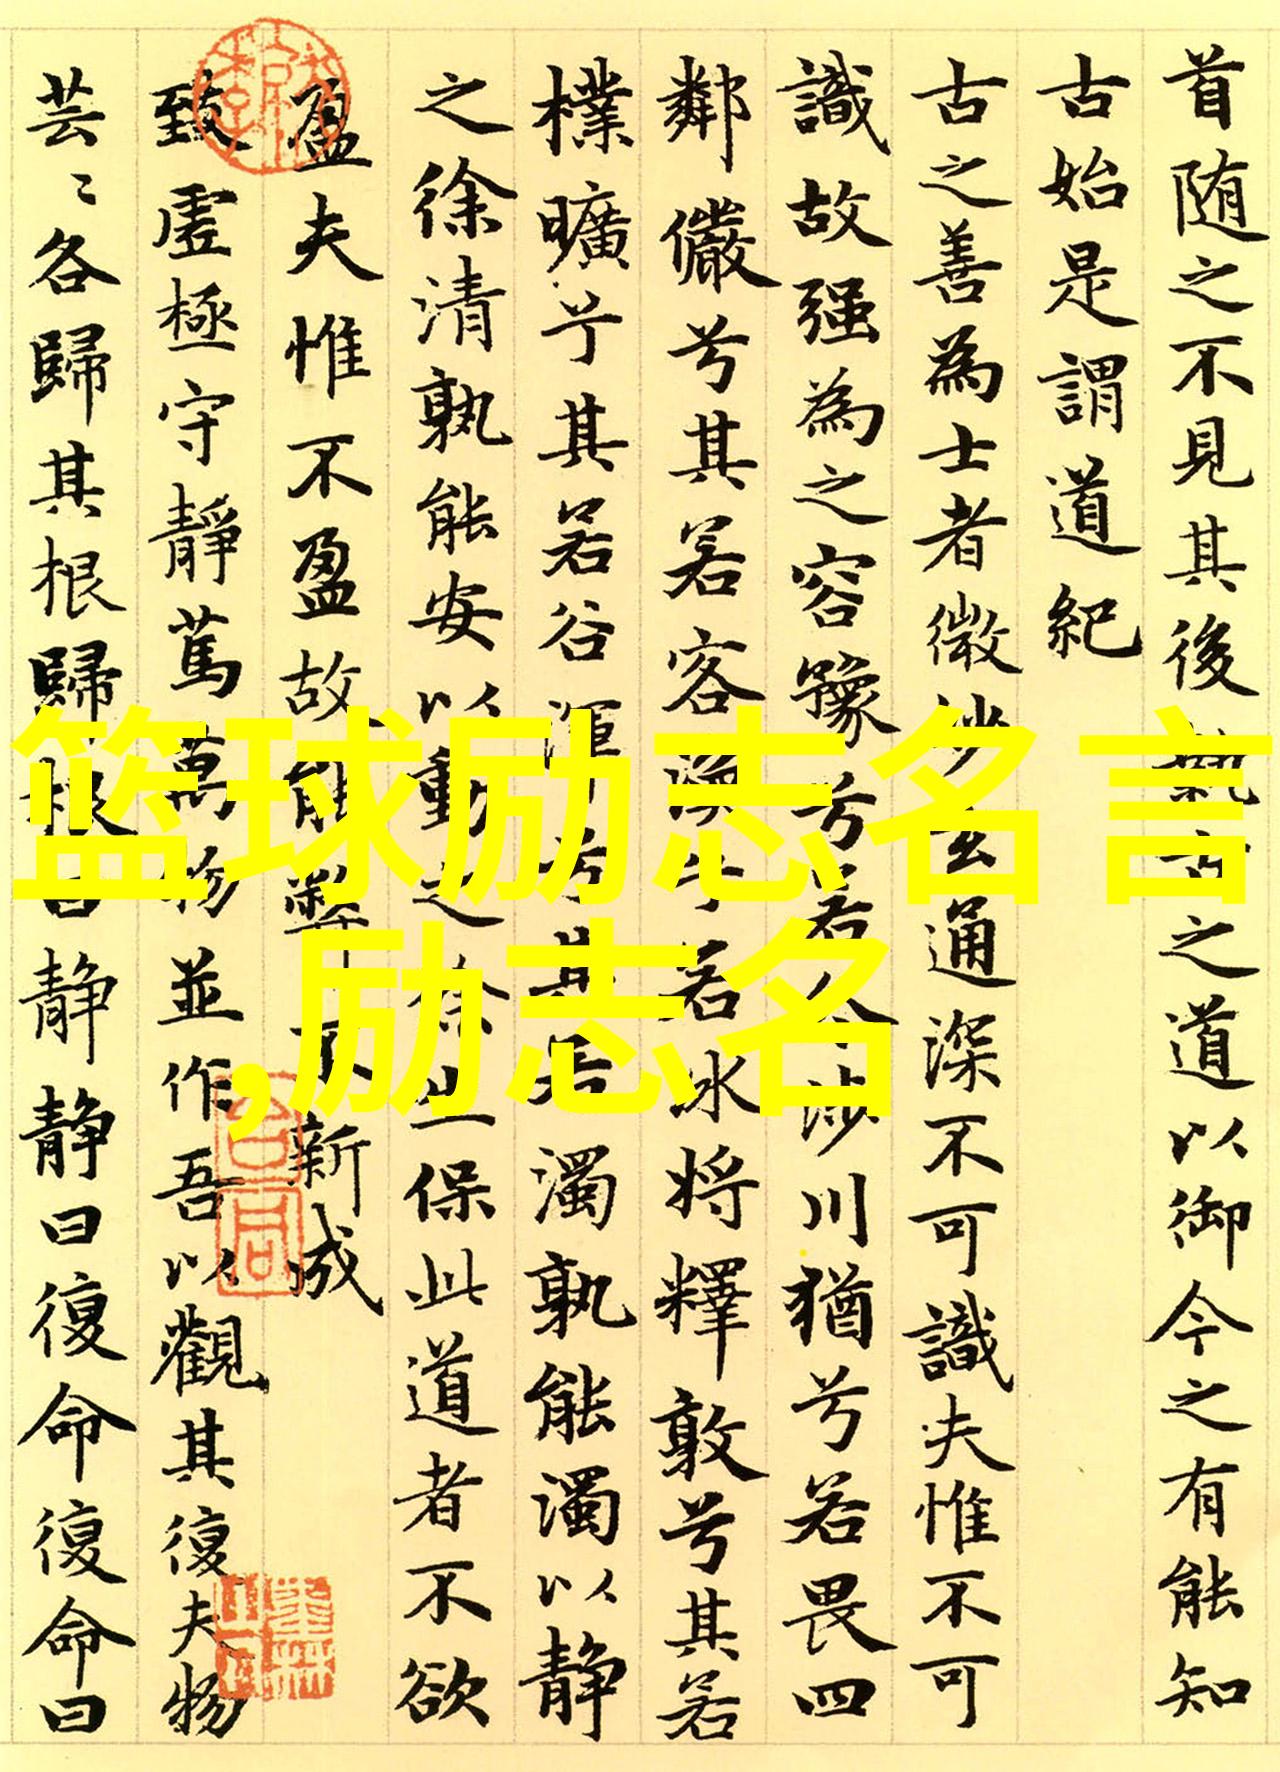 首随之不見其後執古之道以御今之有能知
古始是謂道紀
古之善為士者微妙玄通深不可識夫惟不可
識故强為之容豫兮若冬涉川猶兮若畏四
鄰儼兮其若客渙兮若冰将釋敦兮其若
樸曠兮其若谷渾兮其若濁孰能濁以静
之徐清孰能安以動之徐生保此道者不欲
盈夫惟不盈故能弊不新成
致虚極守靜篤萬物並作吾以觀其復夫物
芸〻各歸其根歸根曰静静曰復命復命曰
篮球励志名言
,励志名